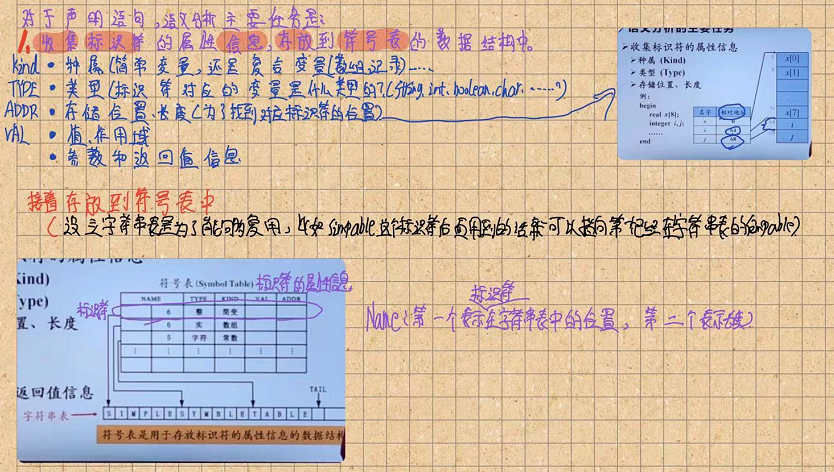 对于声明语句，语义分析主要任务是：
1. 收集标识符的属性信息，存放到符号表的数据结构中。
kind • 种属（简单变量，还是复合变量（数组、记录）……
TYPE • 类型（标识符对应的变量是什么类型的？（String, int, boolean, char, ……？）
ADDR • 存储位置、长度（为了找到对应标识符的位置）
VAL • 值、作用域
• 参数和返回值信息
语义分析的主要任务
收集标识符的属性信息
种属 (Kind)
类型 (Type)
存储位置、长度
例：
begin
real x[8];
integer i, j;
……
end
名字 相对地址
x 0
i 64
j 68
x[0]
x[1]
x[7]
i
j
接着存放到符号表中
（设立字符串表是为了能够复用，比如 simpable
标识符
Name（第一个表示在字符串表中的位置，第二个表示长度）
Kind)
ype)
置、长度
返回值信息
字符串表
符号表 (Symbol Table) 标识符的属性信息
标识符
NAME TYPE KIND VAL ADDR
6 整 简变
6 实 数组
5 字符 常数
⋮ ⋮ ⋮ ⋮ ⋮
TAIL
S I M P L E S Y M B L E T A B L E
符号表是用于存放标识符的属性信息的数据结构